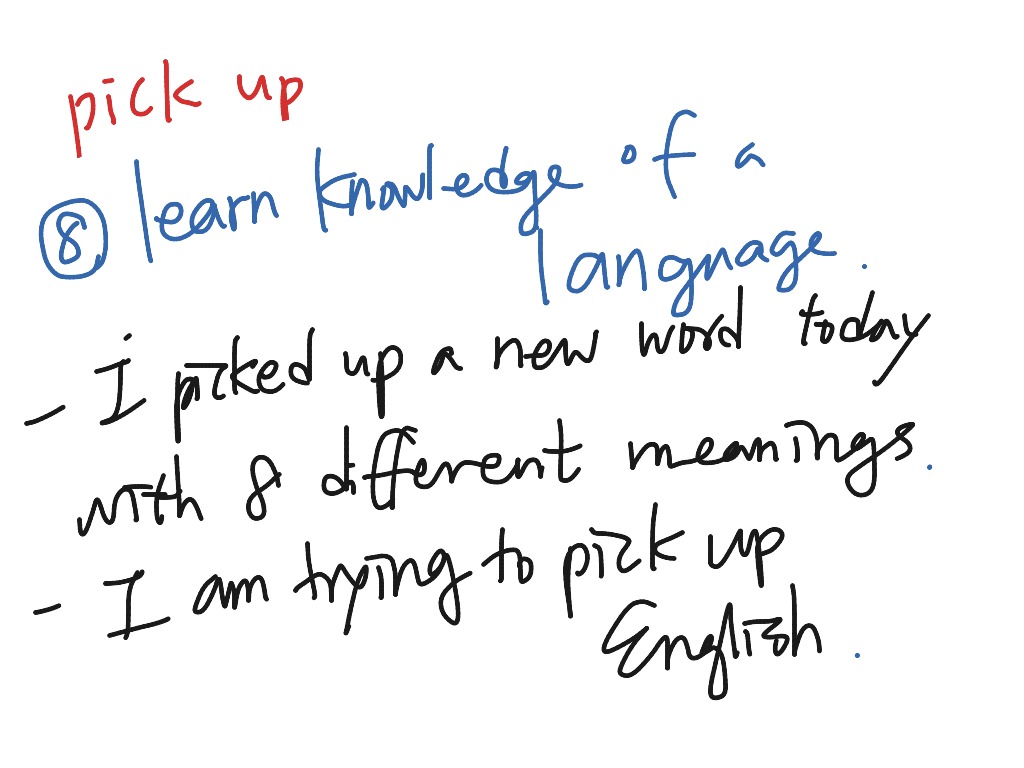 pick up
⑧ learn knowledge of a
language.
- I picked up a new word today
with 8 different meanings.
- I am trying to pick up
English.